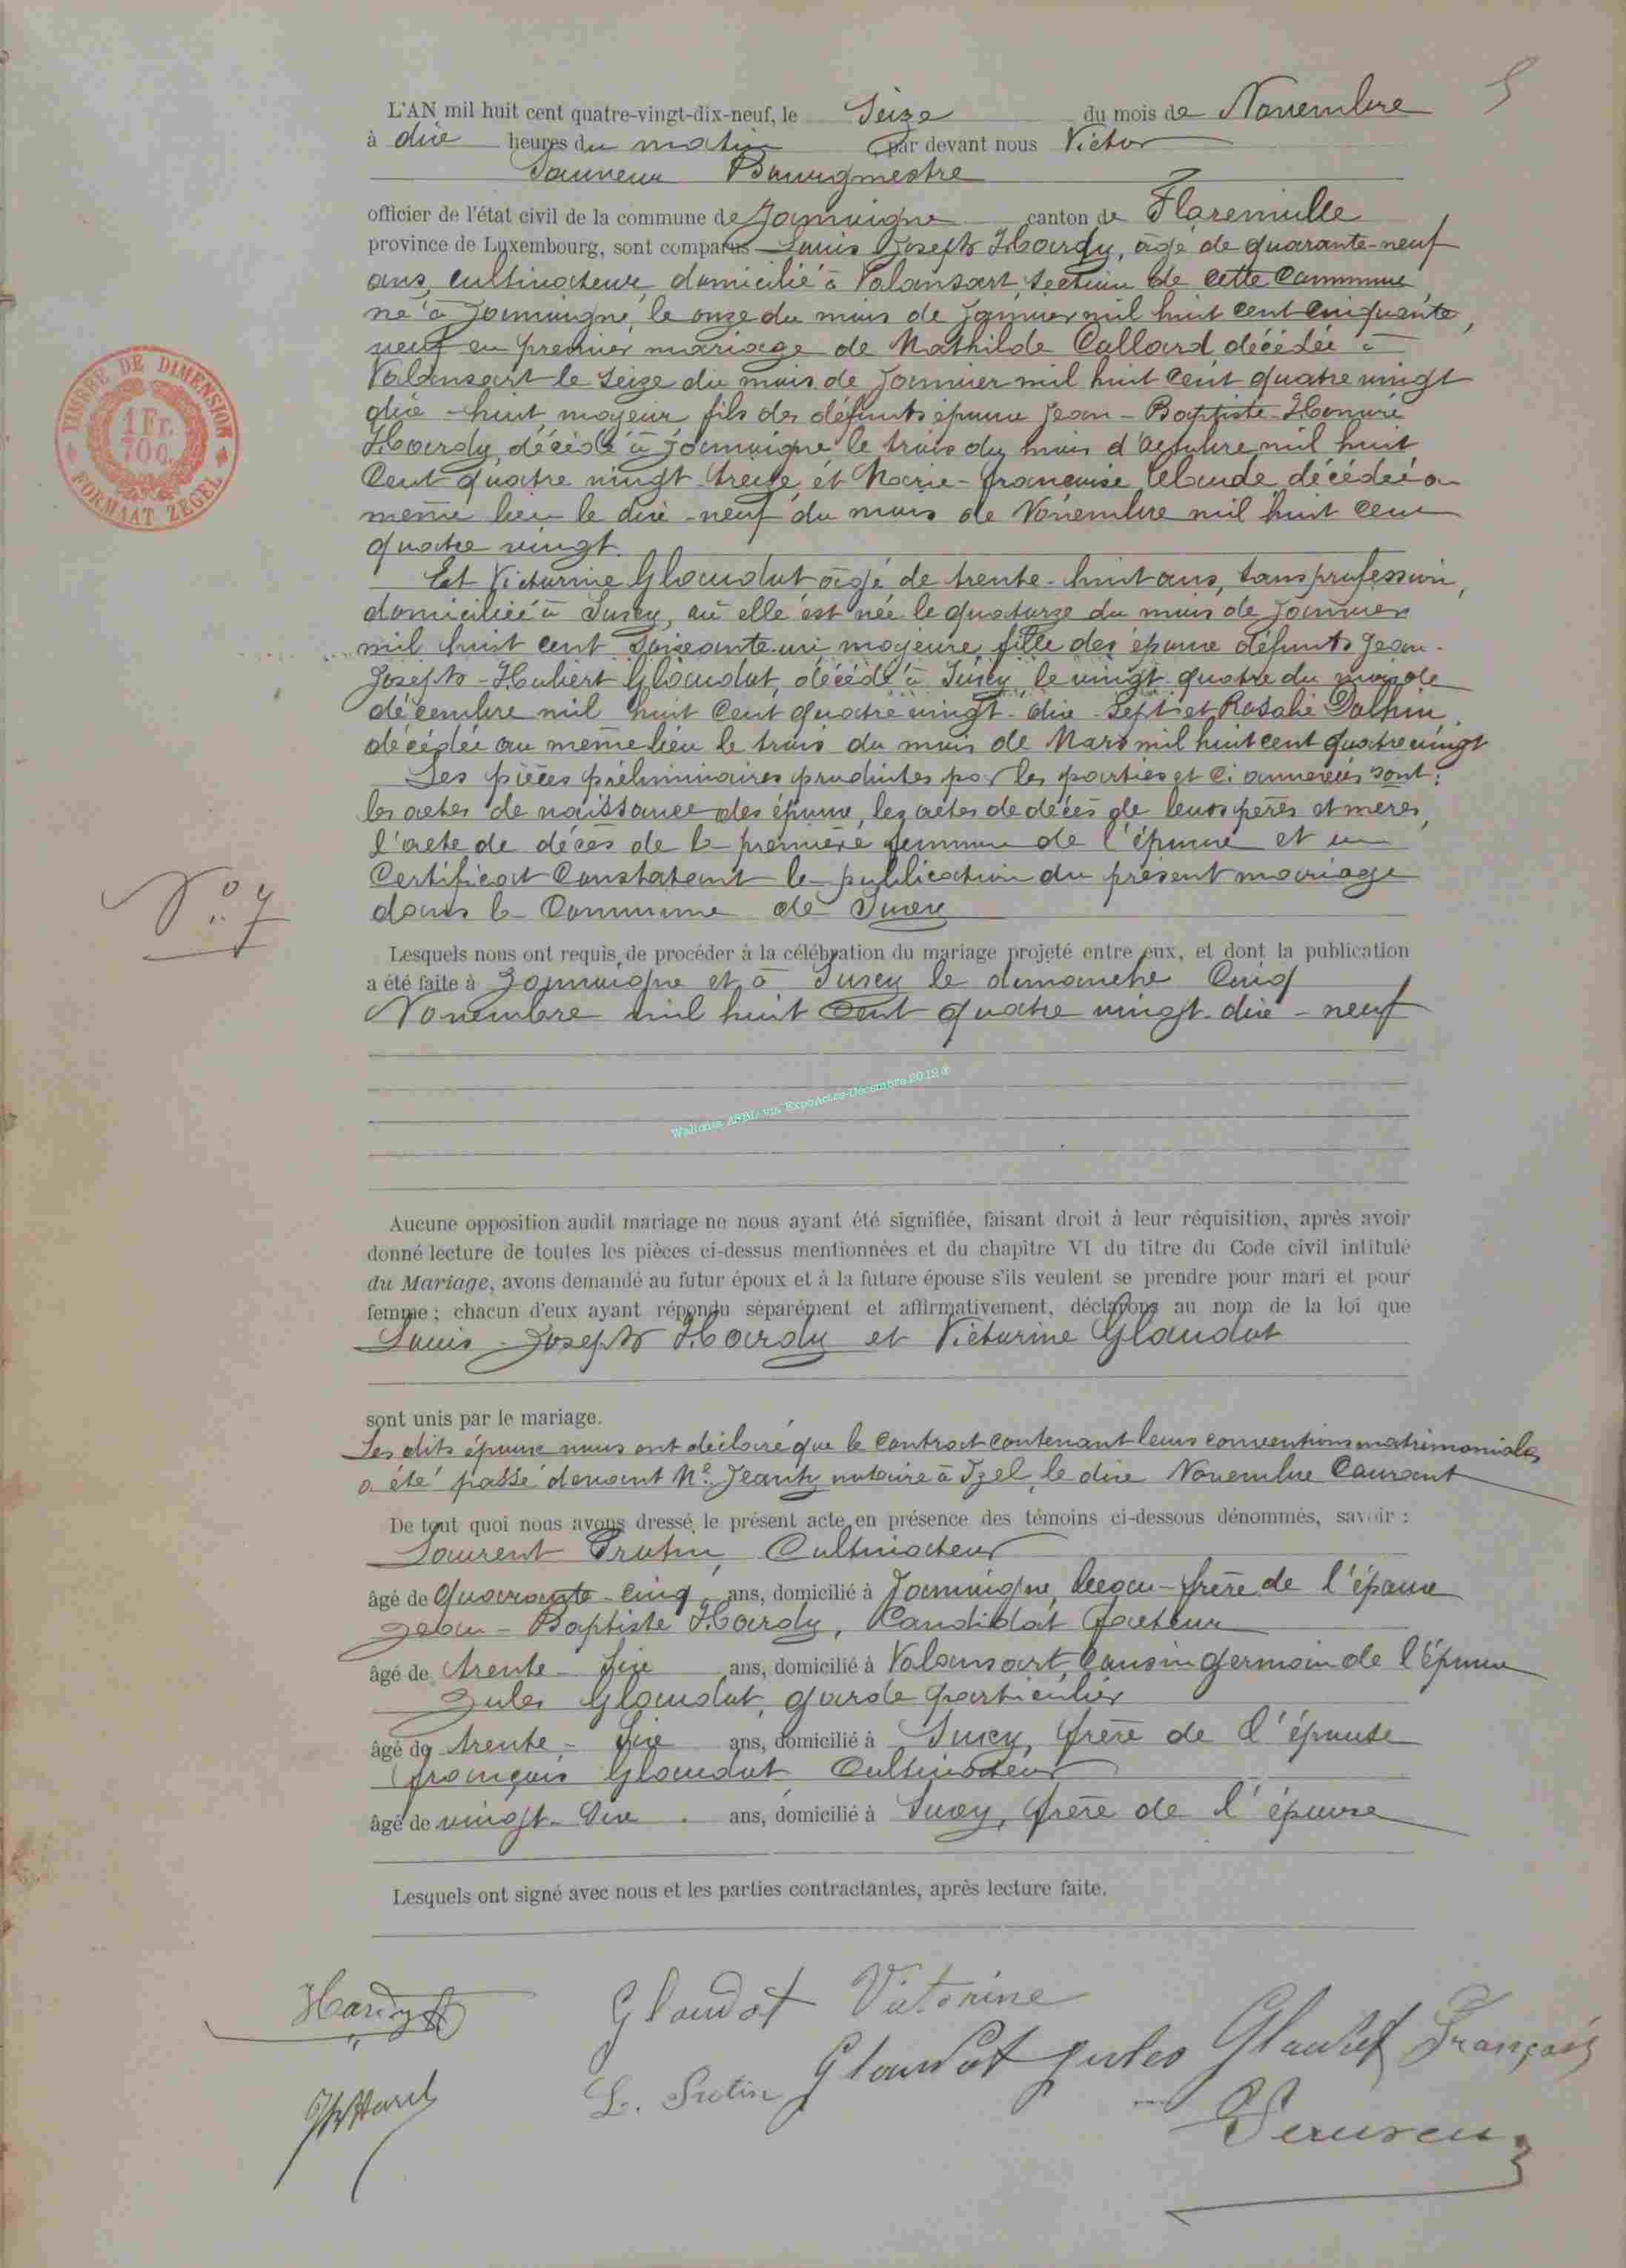 5
L'AN mil huit cent quatre-vingt-dix-neuf, le Seize du mois de Novembre
à dix heures du matin par devant nous Victor
Bourgmestre
officier de l'état civil de la commune de Jamoigne canton de Florenville
province de Luxembourg, sont comparus Louis Joseph Hardy, âgé de quarante-neuf
ans, cultivateur, domicilié à Valansart, section de cette Commune,
né à Jamoigne, le onze du mois de Janvier mil huit cent cinquante,
veuf en premier mariage de Mathilde Collard, décédée à
Valansart le seize du mois de Janvier mil huit cent quatre vingt
dix-huit, majeur, fils des défunts époux Jean-Baptiste-Honoré
Hardy, décédé à Jamoigne le trois du mois d'octobre mil huit
cent quatre vingt-treize, et Marie-Françoise Claude, décédée au
même lieu le dix-neuf du mois de Novembre mil huit cent
quatre vingt.
Et Victorine Glaudot âgé de trente-huit ans, sans profession,
domiciliée à Suxy, où elle est née le quatorze du mois de Janvier
mil huit cent soixante-un, majeure, fille des époux défunts Jean-
Joseph-Hubert Glaudot, décédé à Suxy, le vingt-quatre du mois de
décembre mil huit cent quatre vingt-dix-sept et Rosalie
décédée au même lieu le trois du mois de Mars mil huit cent quatre vingt
Les pièces préliminaires produites par les parties et ci annexées sont:
les actes de naissance des époux, les actes de décès de leurs pères et mères,
l'acte de décès de la première femme de l'époux et un
Certificat Constatant la publication du présent mariage
dans la Commune de Suxy
N° 7
Lesquels nous ont requis de procéder à la célébration du mariage projeté entre eux, et dont la publication
a été faite à Jamoigne et à Suxy le dimanche Cinq
Novembre mil huit cent quatre vingt-dix-neuf
Wallonia ASBL via ExpoActes-Décembre 2012 ®
Aucune opposition audit mariage ne nous ayant été signifiée, faisant droit à leur réquisition, après avoir
donné lecture de toutes les pièces ci-dessus mentionnées et du chapitre VI du titre du Code civil intitulé
du Mariage, avons demandé au futur époux et à la future épouse s'ils veulent se prendre pour mari et pour
femme; chacun d'eux ayant répondu séparément et affirmativement, déclarons au nom de la loi que
Louis-Joseph Hardy et Victorine Glaudot
sont unis par le mariage.
Les dits époux nous ont déclaré que le Contrat contenant leurs conventions matrimoniales
a été passé devant Me Jeanty notaire à Izel, le dix Novembre Courant
De tout quoi nous avons dressé le présent acte en présence des témoins ci-dessous dénommés, savoir:
Laurent Protin, Cultivateur
âgé de quarante-cinq ans, domicilié à Jamoigne, beau-frère de l'époux
Jean-Baptiste Hardy, Candidat facteur
âgé de trente-six ans, domicilié à Valansart, Cousin germain de l'époux
Jules Glaudot, garde particulier
âgé de trente-six ans, domicilié à Suxy, frère de l'épouse
François Glaudot Cultivateur
âgé de vingt-six ans, domicilié à Suxy, frère de l'épouse
Lesquels ont signé avec nous et les parties contractantes, après lecture faite.
Hardy Glaudot Victorine
L. Protin Glaudot Jules Glaudot François
TIMBRE DE DIMENSION
1 Fr.
70 c.
FORMAAT ZEGEL